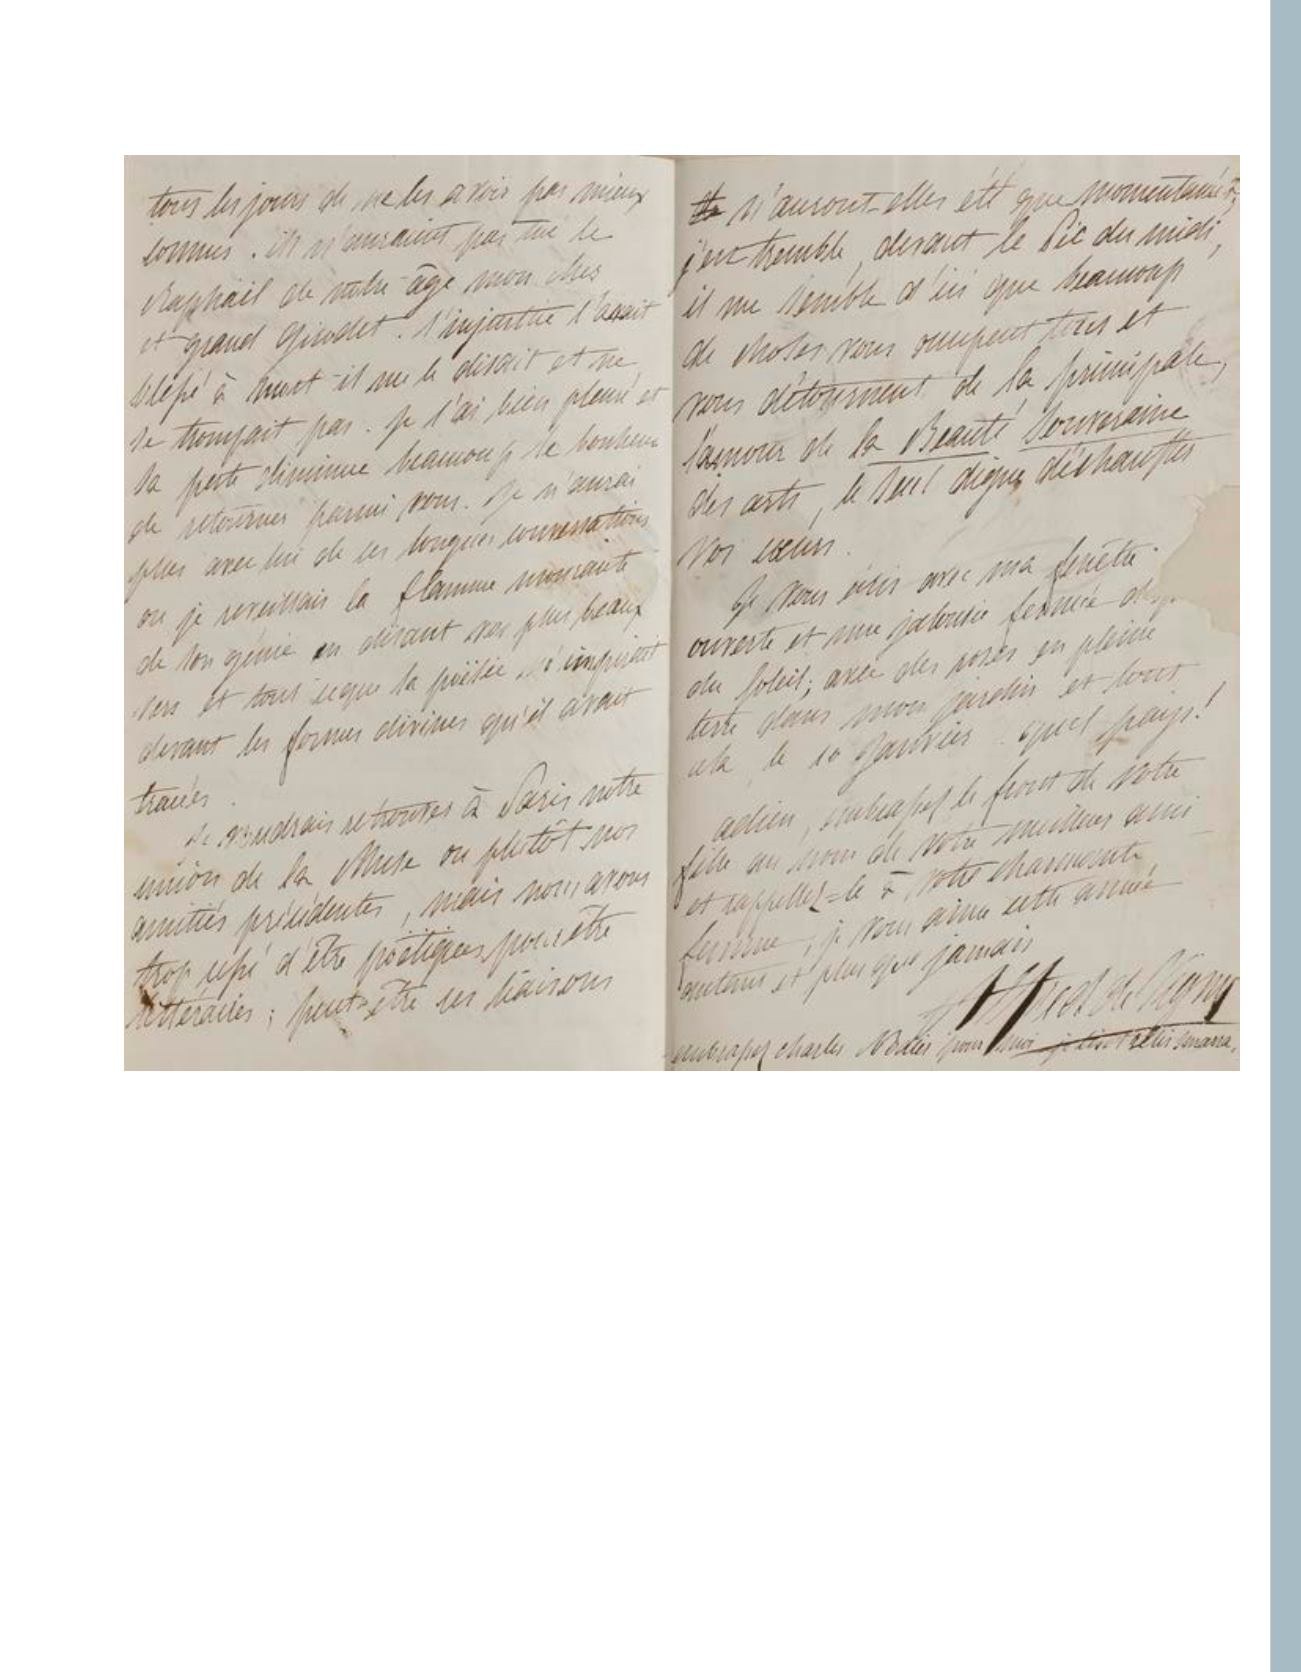 tous les jours de ne les avoir pas mieux
connus. ils n'auraient pas tué le
Raphaël de notre âge mon cher
et grand Girodet. l'injustice l'avait
blessé à mort il me le disait et ne
se trompait pas. Je l'ai bien pleuré et
sa perte diminue beaucoup le bonheur
de retourner parmi vous. Je n'aurai
plus avec lui de ces longues conversations
ou je reveillais la flamme mourante
de son génie en disant vos plus beaux
vers et tout ce que la poësie m'inspirait
devant les formes divines qu'il avait
tracées.
Je voudrais retrouver à Paris notre
union de la Muse ou plutôt nos
amitiés précédentes, mais nous avons
trop cessé d'être poëtiques pour être
littéraires ; peut-être ces liaisons
n'auront-elles été que momentanées,
j'en tremble, devant le Pic du midi,
il me semble d'ici que beaucoup
de choses vous occupent tous et
vous détournent de la principale,
l'amour de la Beauté Souveraine
des arts, le seul digne d'échauffer
vos cœurs.
Je vous écris avec ma fenêtre
ouverte et une jalousie fermée
du soleil ; avec des roses en pleine
terre dans mon jardin et tout
cela le 10 Janvier. quel pays!
adieu, embrassez le front de votre
fille au nom de votre meilleur ami
et rappellez-le à votre charmante
femme, je vous aime cette année
autant et plus que jamais
Alfred de Vigny
embrassez charles Nodier pour moi je lis et relis Smarra.